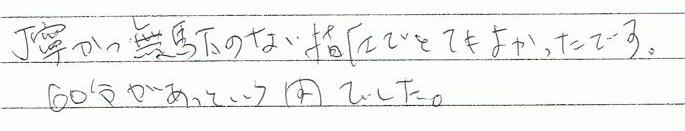 丁寧かつ無駄のない指広でとてもよかったです。
60分があっという間でした。